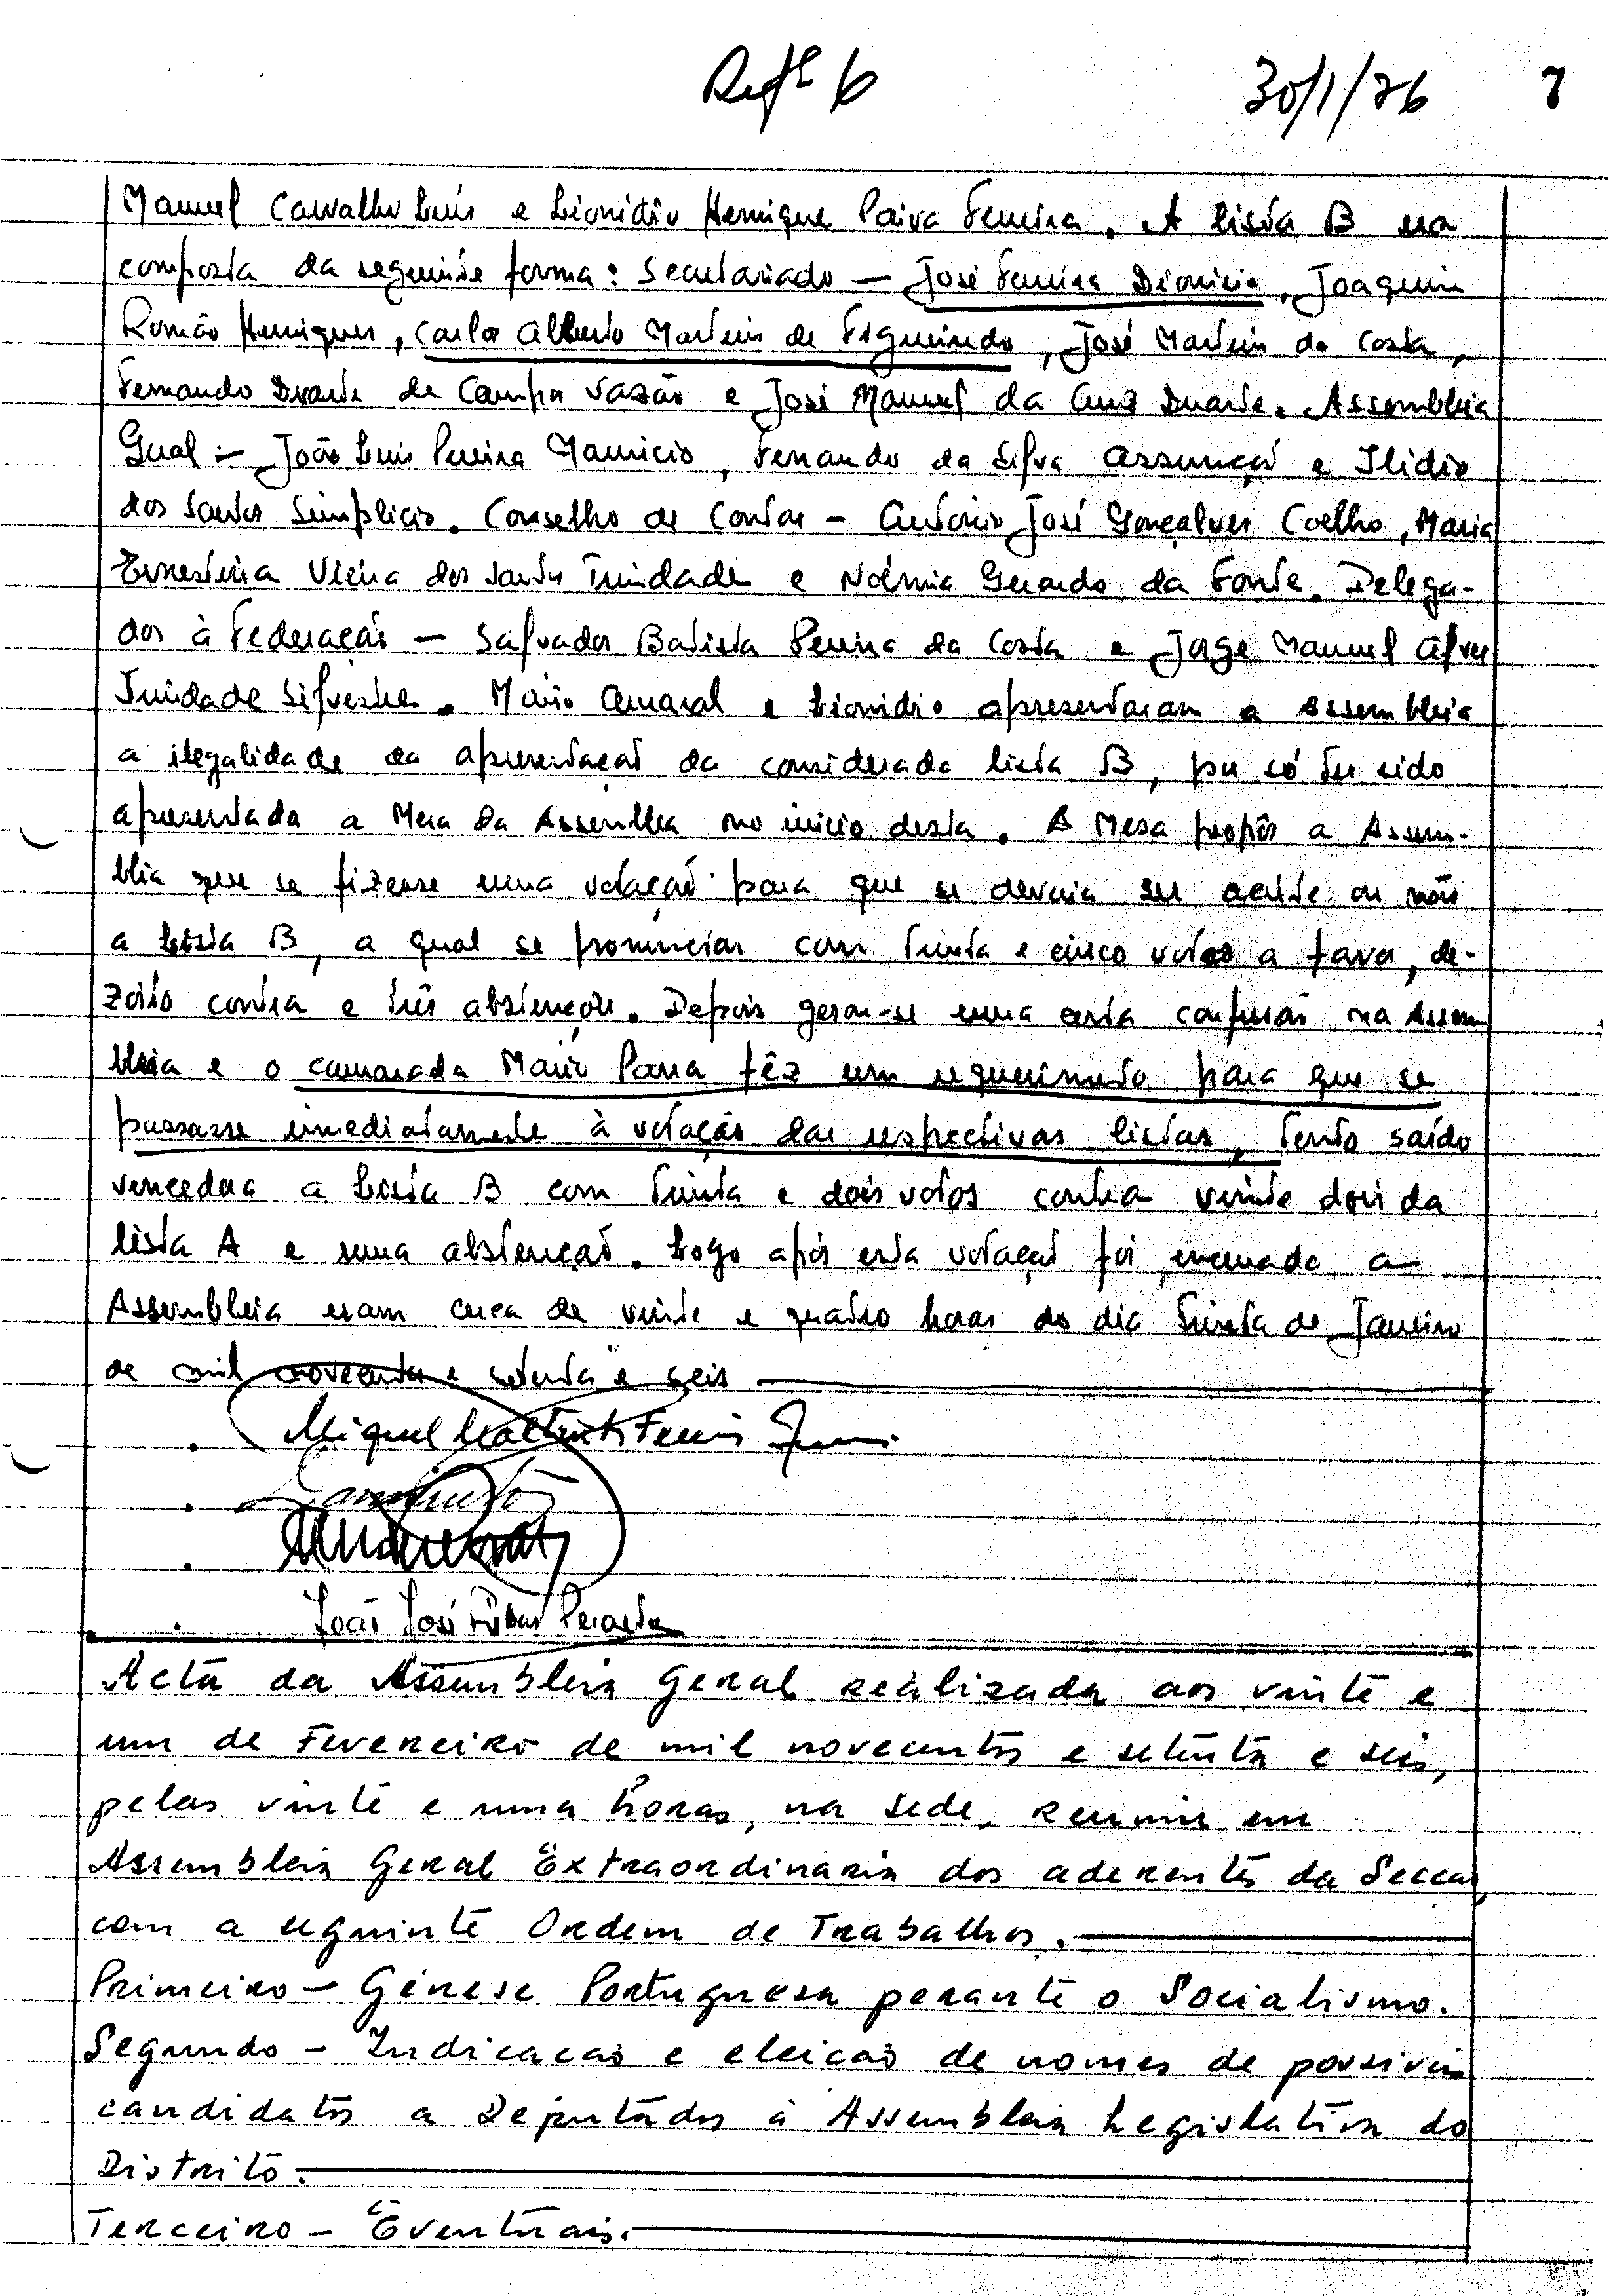 Refª 6 30/1/76 7
Manuel Carvalho Luís e Lionidio Henrique Paiva Ferreira. A lista B era
composta da seguinte forma: Secretariado — José Ferreira Dionisio, Joaquim
Romão Henriques, Carlos Alberto Martins de Figueiredo, José Martins da Costa,
Fernando Duarte de Campos Vazão e José Manuel da Cruz Duarte. Assembleia
Geral — João Luis Pereira Mauricio, Fernando da Silva Assunção e Ilidio
dos Santos Simplicio. Conselho de Contas — António José Gonçalves Coelho, Maria
Ernestina Vieira dos Santos Trindade e Noémia Gerardo da Fonte. Delega-
dos à Federação — Salvador Batista Pereira da Costa e Jorge Manuel Alves
Trindade Silvestre. Mário Amaral e Lionidio apresentaram a Assembleia
a ilegalidade da apresentação da considerada lista B, por só ter sido
apresentada a Mesa da Assembleia no inicio desta. A Mesa propôs a Assem-
bleia que se fizesse uma votação para que se deveria ser aceite ou não
a Lista B, a qual se pronunciou com trinta e cinco votos a favor, de-
zoito contra e três abstenções. Depois gerou-se uma certa confusão na Assem
bleia e o camarada Mário Parra fêz um requerimento para que se
passasse imediatamente à votação das respectivas listas, tento saído
vencedora a Lista B com trinta e dois votos contra vinte dois da
lista A e uma abstenção. Logo após esta votação foi encerrada a
Assembleia eram cerca de vinte e quatro horas do dia trinta de Janeiro
de mil novecentos e setenta e seis
Miguel
João José
Acta da Assembleia Geral realizada aos vinte e
um de Fevereiro de mil novecentos e setenta e seis,
pelas vinte e uma horas, na sede, reuniu em
Assembleia Geral Extraordinaria dos aderentes da Secção,
com a seguinte Ordem de Trabalhos.
Primeiro — Génese Portuguesa perante o Socialismo.
Segundo — Indicacão e eleicão de nomes de possiveis
candidatos a Deputados à Assembleia Legislativa do
Distrito.
Terceiro — Eventuais.